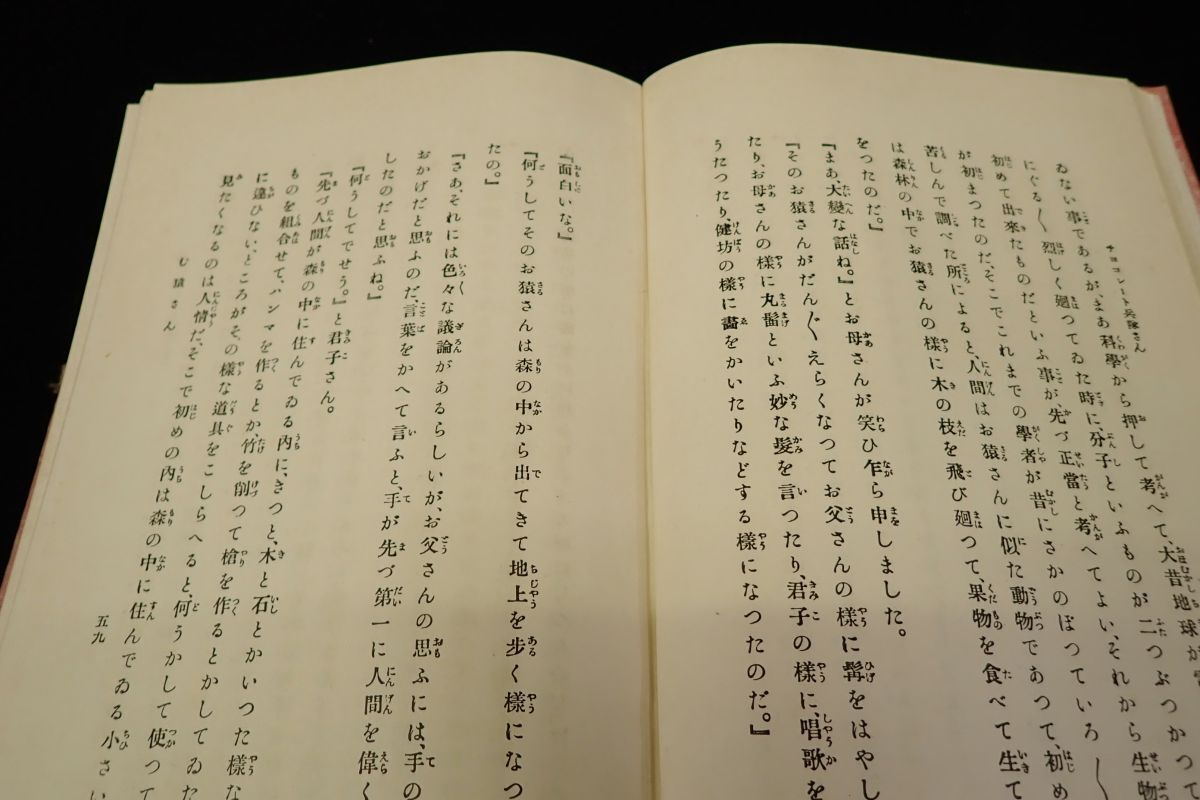 チヨコレート兵隊さん
ゐない事であるが、まあ科學から押して考へて、大昔地球が
にぐる〱烈しく廻つてゐた時に、分子といふものが二つぶつかつて
初めて出來たものだといふ事が、先づ正當と考へてよい、それから生物
が初まつたのだ、そこでこれまでの學者が昔にさかのぼつていろ〱
苦しんで調べた所によると、人間はお猿さんに似た動物であつて、初め
は森林の中でお猿さんの樣に木の枝を飛び廻つて、果物を食べて生て
をつたのだ。』
『まあ、大變な話ね。』とお母さんが笑ひ乍ら申しました。
『そのお猿さんがだん〱えらくなつてお父さんの樣に髯をはやし
たり、お母さんの樣に丸髷といふ妙な髮を言つたり、君子の樣に、唱歌を
うたつたり、健坊の樣に畵をかいたりなどする樣になつたのだ。』
『面白いな。』
『何うしてそのお猿さんは森の中から出てきて地上を歩く樣になつ
たの。』
『さあ、それには色々な議論があるらしいが、お父さんの思ふには、手の
おかげだと思ふのだ、言葉をかへて言ふと、手が先づ第一に人間を偉く
したのだと思ふね。』
『何うしてでせう。』と君子さん。
『先づ人間が森の中に住んでゐる內に、きつと、木と石とかいつた樣な
ものを組合せて、ハンマを作るとか竹を削つて槍を作るとかしてゐた
に違ひない、ところがその樣な道具をこしらへると、何うかして使つて
見たくなるのは人情だ、そこで初めの內は森の中に住んでゐる小さい
む猿さん
五九